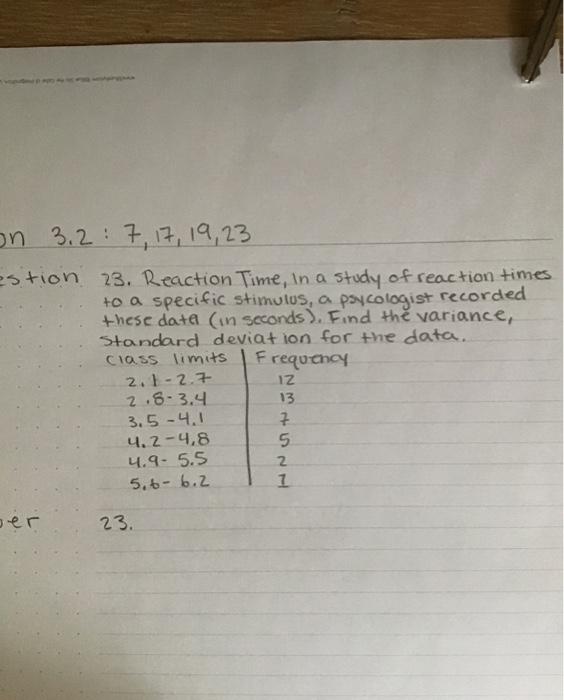 on 3.2 : 7, 17, 19, 23
estion 23. Reaction Time, In a study of reaction times
to a specific stimulus, a psycologist recorded
these data (in seconds). Find the variance,
standard deviation for the data.
Class limits | Frequency
2.1-2.7 12
2.8-3.4 13
3.5-4.1 7
4.2-4.8 5
4.9-5.5 2
5.6-6.2 1
er 23.